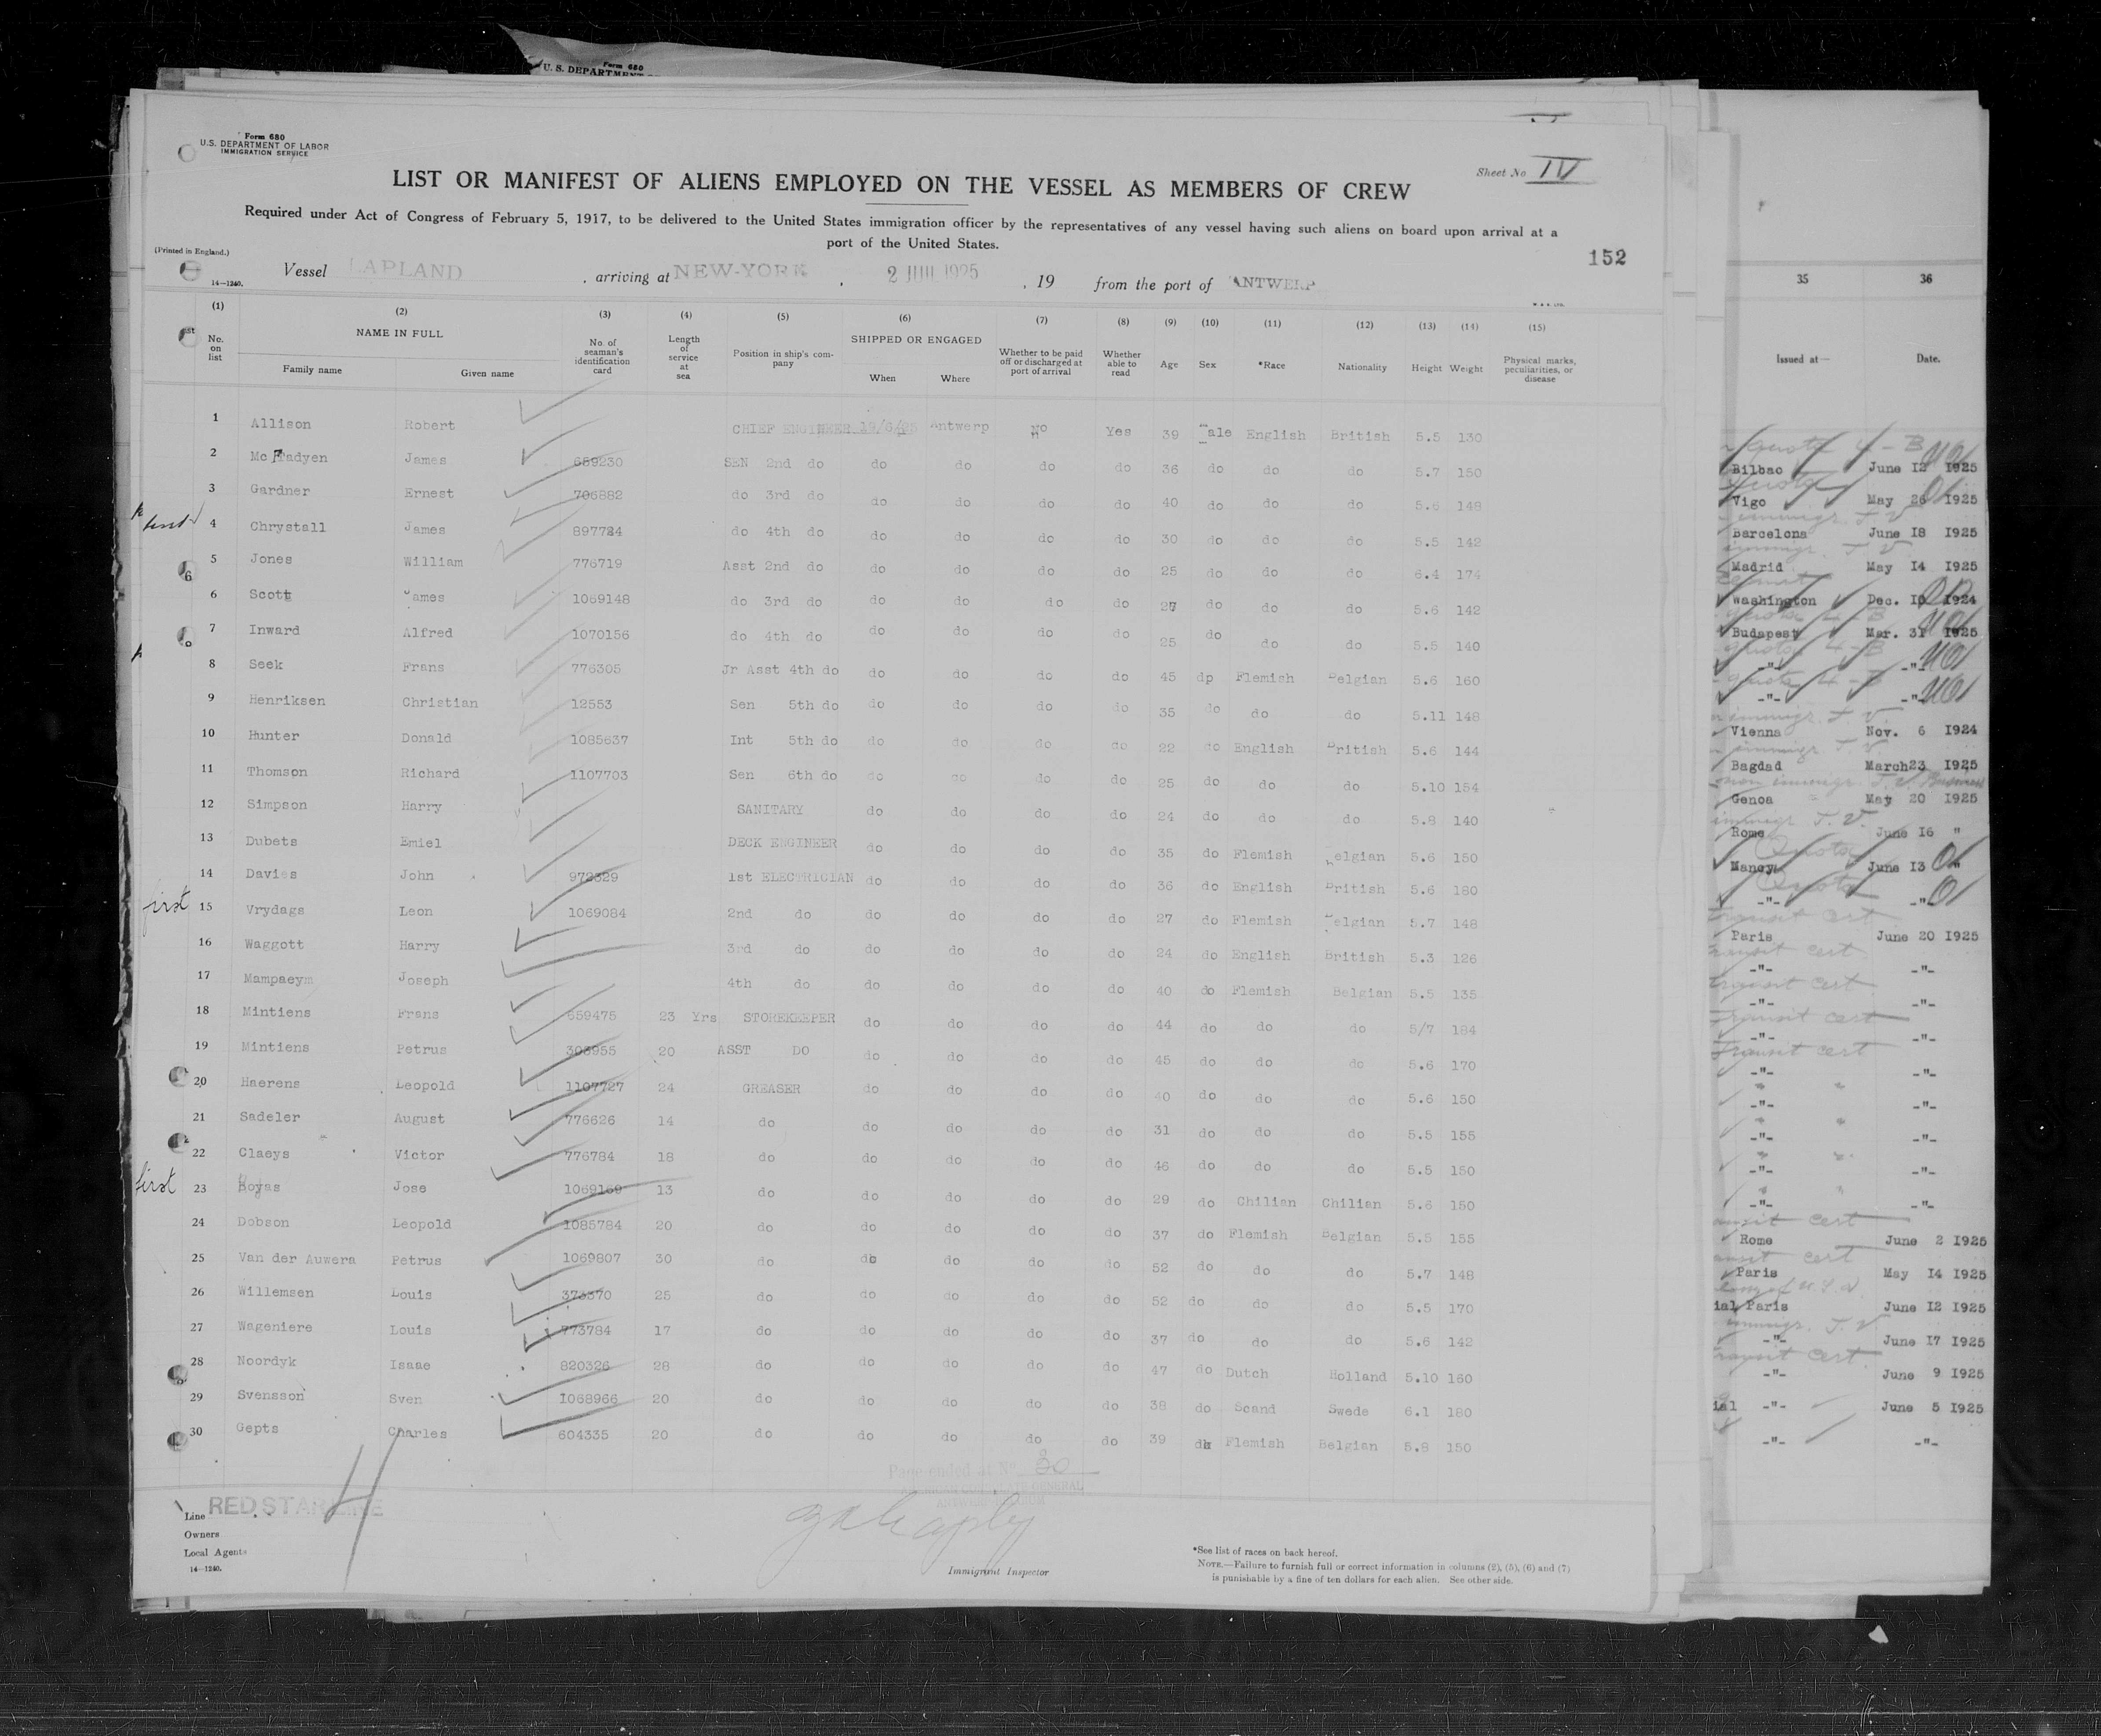 Form 680
U. S. DEPARTMENT
Form 680
U.S. DEPARTMENT OF LABOR
IMMIGRATION SERVICE
Sheet No IV
LIST OR MANIFEST OF ALIENS EMPLOYED ON THE VESSEL AS MEMBERS OF CREW
Required under Act of Congress of February 5, 1917, to be delivered to the United States immigration officer by the representatives of any vessel having such aliens on board upon arrival at a
port of the United States.
152
(Printed in England.)
14—1240.
Vessel LAPLAND, arriving at NEW-YORK, 2 JUIL 1925, 19 from the port of ANTWERP
(1) (2) (3) (4) (5) (6) (7) (8) (9) (10) (11) (12) (13) (14) (15)
No. on list NAME IN FULL Family name Given name No. of seaman's identification card Length of service at sea Position in ship's company SHIPPED OR ENGAGED When Where Whether to be paid off or discharged at port of arrival Whether able to read Age Sex *Race Nationality Height Weight Physical marks, peculiarities, or disease
1 Allison Robert CHIEF ENGINEER 19/6/25 Antwerp No Yes 39 Male English British 5.5 130
2 Mc Fadyen James 659230 SEN 2nd do do do do do 36 do do do 5.7 150
3 Gardner Ernest 706882 do 3rd do do do do do 40 do do do 5.6 148
4 Chrystall James 897784 do 4th do do do do do 30 do do do 5.5 142
5 Jones William 776719 Asst 2nd do do do do do 25 do do do 6.4 174
6 Scott James 1069148 do 3rd do do do do do 27 do do do 5.6 142
7 Inward Alfred 1070156 do 4th do do do do do 25 do do do 5.5 140
8 Seek Frans 776305 Jr Asst 4th do do do do do 45 dp Flemish Belgian 5.6 160
9 Henriksen Christian 12553 Sen 5th do do do do do 35 do do do 5.11 148
10 Hunter Donald 1085637 Int 5th do do do do do 22 do English British 5.6 144
11 Thomson Richard 1107703 Sen 6th do do do do do 25 do do do 5.10 154
12 Simpson Harry SANITARY do do do do 24 do do do 5.8 140
13 Dubets Emiel DECK ENGINEER do do do do 35 do Flemish Belgian 5.6 150
14 Davies John 972329 1st ELECTRICIAN do do do do 36 do English British 5.6 180
first 15 Vrydags Leon 1069084 2nd do do do do do 27 do Flemish Belgian 5.7 148
16 Waggott Harry 3rd do do do do do 24 do English British 5.3 126
17 Mampaeym Joseph 4th do do do do do 40 do Flemish Belgian 5.5 135
18 Mintiens Frans 659475 23 Yrs STOREKEEPER do do do do 44 do do do 5/7 184
19 Mintiens Petrus 303955 20 ASST DO do do do do 45 do do do 5.6 170
20 Haerens Leopold 1107727 24 GREASER do do do do 40 do do do 5.6 150
21 Sadeler August 776626 14 do do do do do 31 do do do 5.5 155
22 Claeys Victor 776784 18 do do do do do 46 do do do 5.5 150
first 23 Boyas Jose 1069169 13 do do do do do 29 do Chilian Chilian 5.6 150
24 Dobson Leopold 1085784 20 do do do do do 37 do Flemish Belgian 5.5 155
25 Van der Auwera Petrus 1069807 30 do do do do do 52 do do do 5.7 148
26 Willemsen Louis 373370 25 do do do do do 52 do do do 5.5 170
27 Wageniere Louis 773784 17 do do do do do 37 do do do 5.6 142
28 Noordyk Isaae 820326 28 do do do do do 47 do Dutch Holland 5.10 160
29 Svensson Sven 1068966 20 do do do do do 38 do Scand Swede 6.1 180
30 Gepts Charles 604335 20 do do do do do 39 do Flemish Belgian 5.8 150
Page ended at No 30
Line RED STAR LINE
Owners
Local Agents
14—1240.
Immigrant Inspector
*See list of races on back hereof.
NOTE.—Failure to furnish full or correct information in columns (2), (5), (6) and (7)
is punishable by a fine of ten dollars for each alien. See other side.
35 36
Issued at— Date.
Quota 4-B
Bilbao June 12 1925
Quota
Vigo May 26 1925
immigr. T V
Barcelona June 18 1925
immigr. T V
Madrid May 14 1925
Washington Dec. 10 1924
Quota 4-B
Budapest Mar. 31 1925
Quota 4-B
-"- -"-
Quota 4-B
-"- -"-
immigr T V
Vienna Nov. 6 1924
immigr T.V.
Bagdad March23 1925
non immigr. T.V. Business
Genoa May 20 1925
immigr T.V.
Rome June 16 "
Quota
Nancy June 13 "
Quota
-"- -"-
Transit cert
Paris June 20 1925
Transit cert
-"- -"-
Transit cert
-"- -"-
Transit cert
-"- -"-
Transit cert
-"- -"-
-"- -"-
-"- -"-
-"- -"-
-"- -"-
ansit cert
Rome June 2 1925
ansit cert
Paris May 14 1925
ial Paris June 12 1925
immigr. T.V
-"- June 17 1925
Transit cert.
-"- June 9 1925
ial -"- June 5 1925
-"- -"-